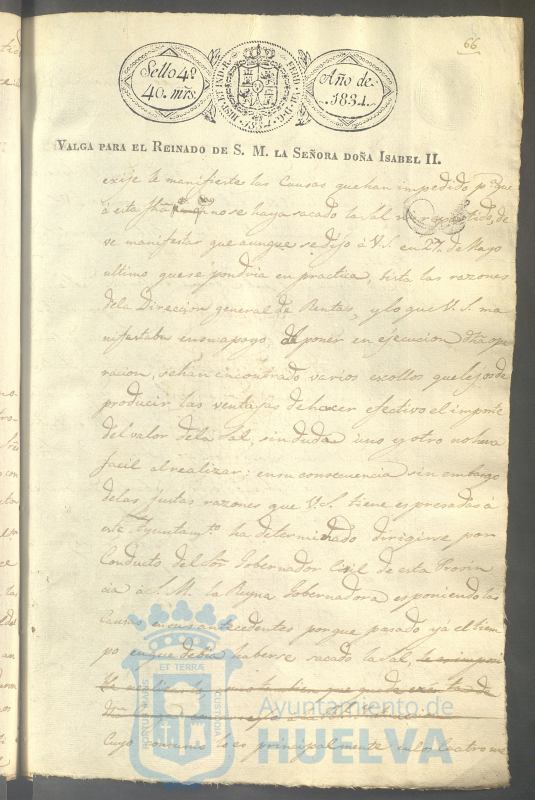 66
Sello 4º
40. mrs.
HISP. ET IND. R.
1834
Año de
1834.
VALGA PARA EL REINADO DE S. M. LA SEÑORA DOÑA ISABEL II.
exije le manifieste las Causas que han impedido pª que
á esta no se haya sacado la Sal de
ve manifestar que aunque se dijo á V.S. en 27 de Mayo
ultimo que se pondria en practica, vista las razones
dela Direccion general de Rentas, y lo que V. S. ma
nifestaba en su apoyo, de poner en ejecucion dha ope
racion, se han encontrado varios escollos que lejos de
producir las ventajas de hacer efectivo el importe
del valor dela Sal, sin duda uno y otro no sera
facil al realizar: en su consecuencia sin embargo
delas justas razones que V.S. tiene espresadas á
este Ayuntamto ha determinado dirigirse por
Conducto del Sor Gobernador Civil de esta Provin
cia á S. M. la Reyna Gobernadora esponiendo las
Causas en sus antecedentes porque pasado yá el tiem
po en que debia haberse sacado la sal,
cuyo consumo lo es principalmente en los cuatro me
ET TERRÆ
CUSTODIA
Ayuntamiento de
HUELVA